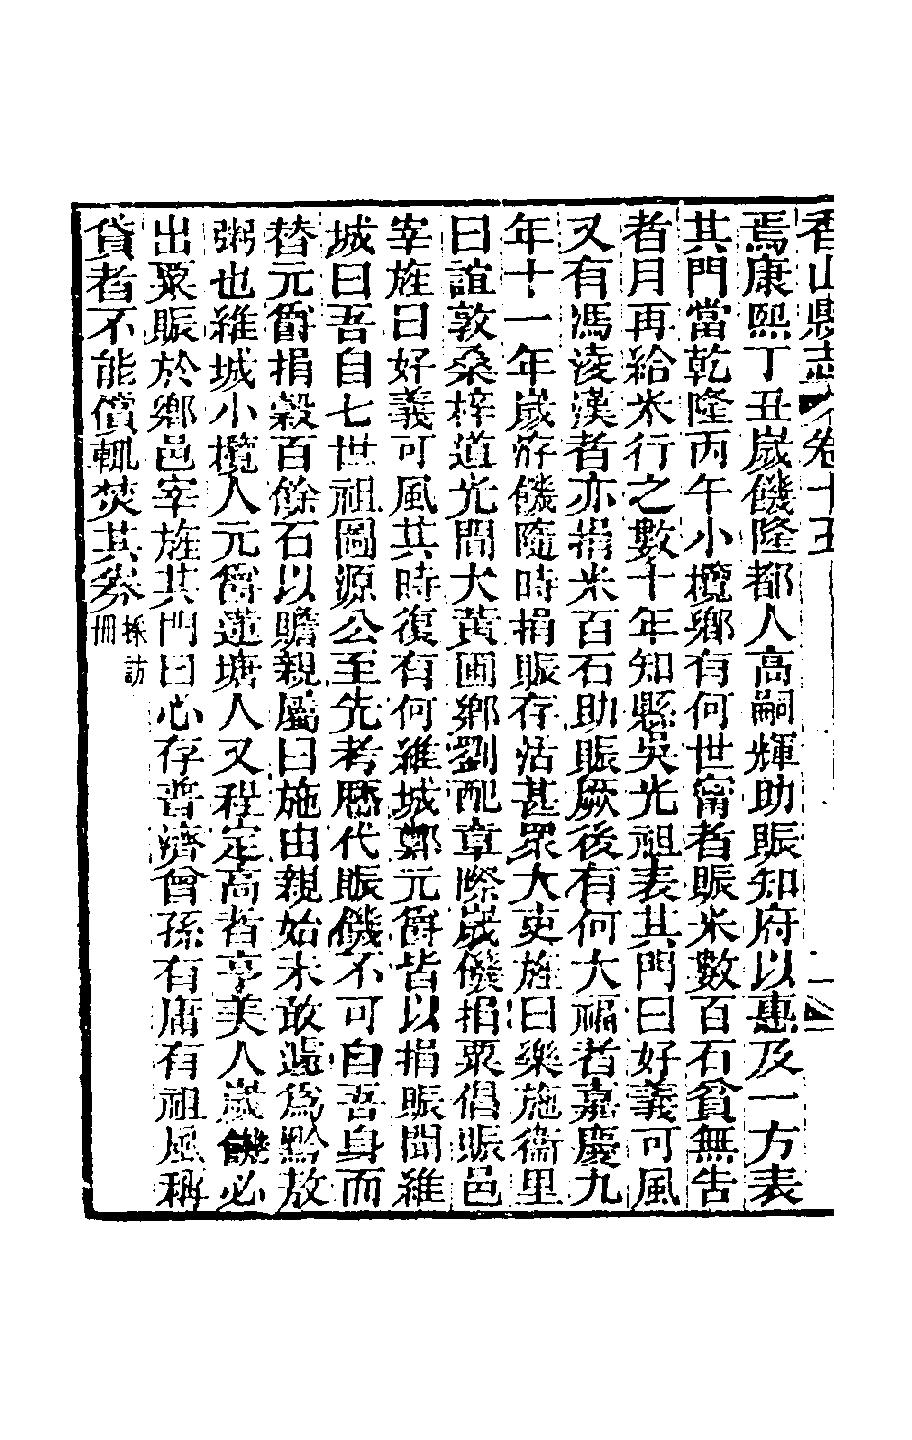 香山縣志 卷十五
焉康熙丁丑歲饑隆都人高嗣輝助賑知府以惠及一方表
其門當乾隆丙午小欖鄉有何世甯者賑米數百石貧無告
者月再給米行之數十年知縣吳光祖表其門曰好義可風
又有馮淩漢者亦捐米百石助賑厥後有何大福者嘉慶九
年十一年歲洊饑隨時捐賑存活甚眾大吏旌曰樂施衞里
曰誼敦桑梓道光間大黃圃鄉劉配章際歲饑捐粟倡賑邑
宰旌曰好義可風其時復有何維城鄭元爵皆以捐賑聞維
城曰吾自七世祖圖源公至先考歷代賑饑不可自吾身而
替元爵捐穀百餘石以贍親屬曰施由親始未敢遽為黔敖
粥也維城小欖人元爵蓮塘人又程定高者亨美人歲饑必
出粟賑於鄉邑宰旌其門曰心存普濟曾孫有庸有祖風稱
貸者不能償輒焚其券採訪冊